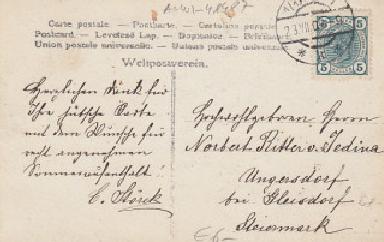 Carte postale. — Postkarte. — Cartolina postale.
Postcard. — Levelező Lap. — Dopisnice. — 
Union postale universelle. — Unione postale universale.
Weltpostverein.
5 5
Herzlichen Dank für
Ihre hübsche Karte
mit dem Wunsche für
recht angenehmen
Sommeraufenthalt!
E. Störck
Hochwohlgeboren Herrn
Norbert Ritter v. Jedina
Ungersdorf
bei Gleisdorf
Steiermark